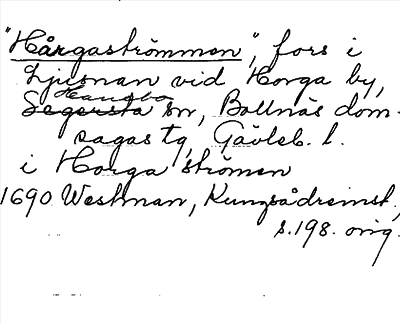 "Hårgaströmmen", fors i
Ljusnan vid Horga by,
Hanebo
Segersta sn, Bollnäs dom-
sagas tg, Gävleb. l.
i Horga strömen
1690 Westman, Kungsådreinst,
s.198. orig.